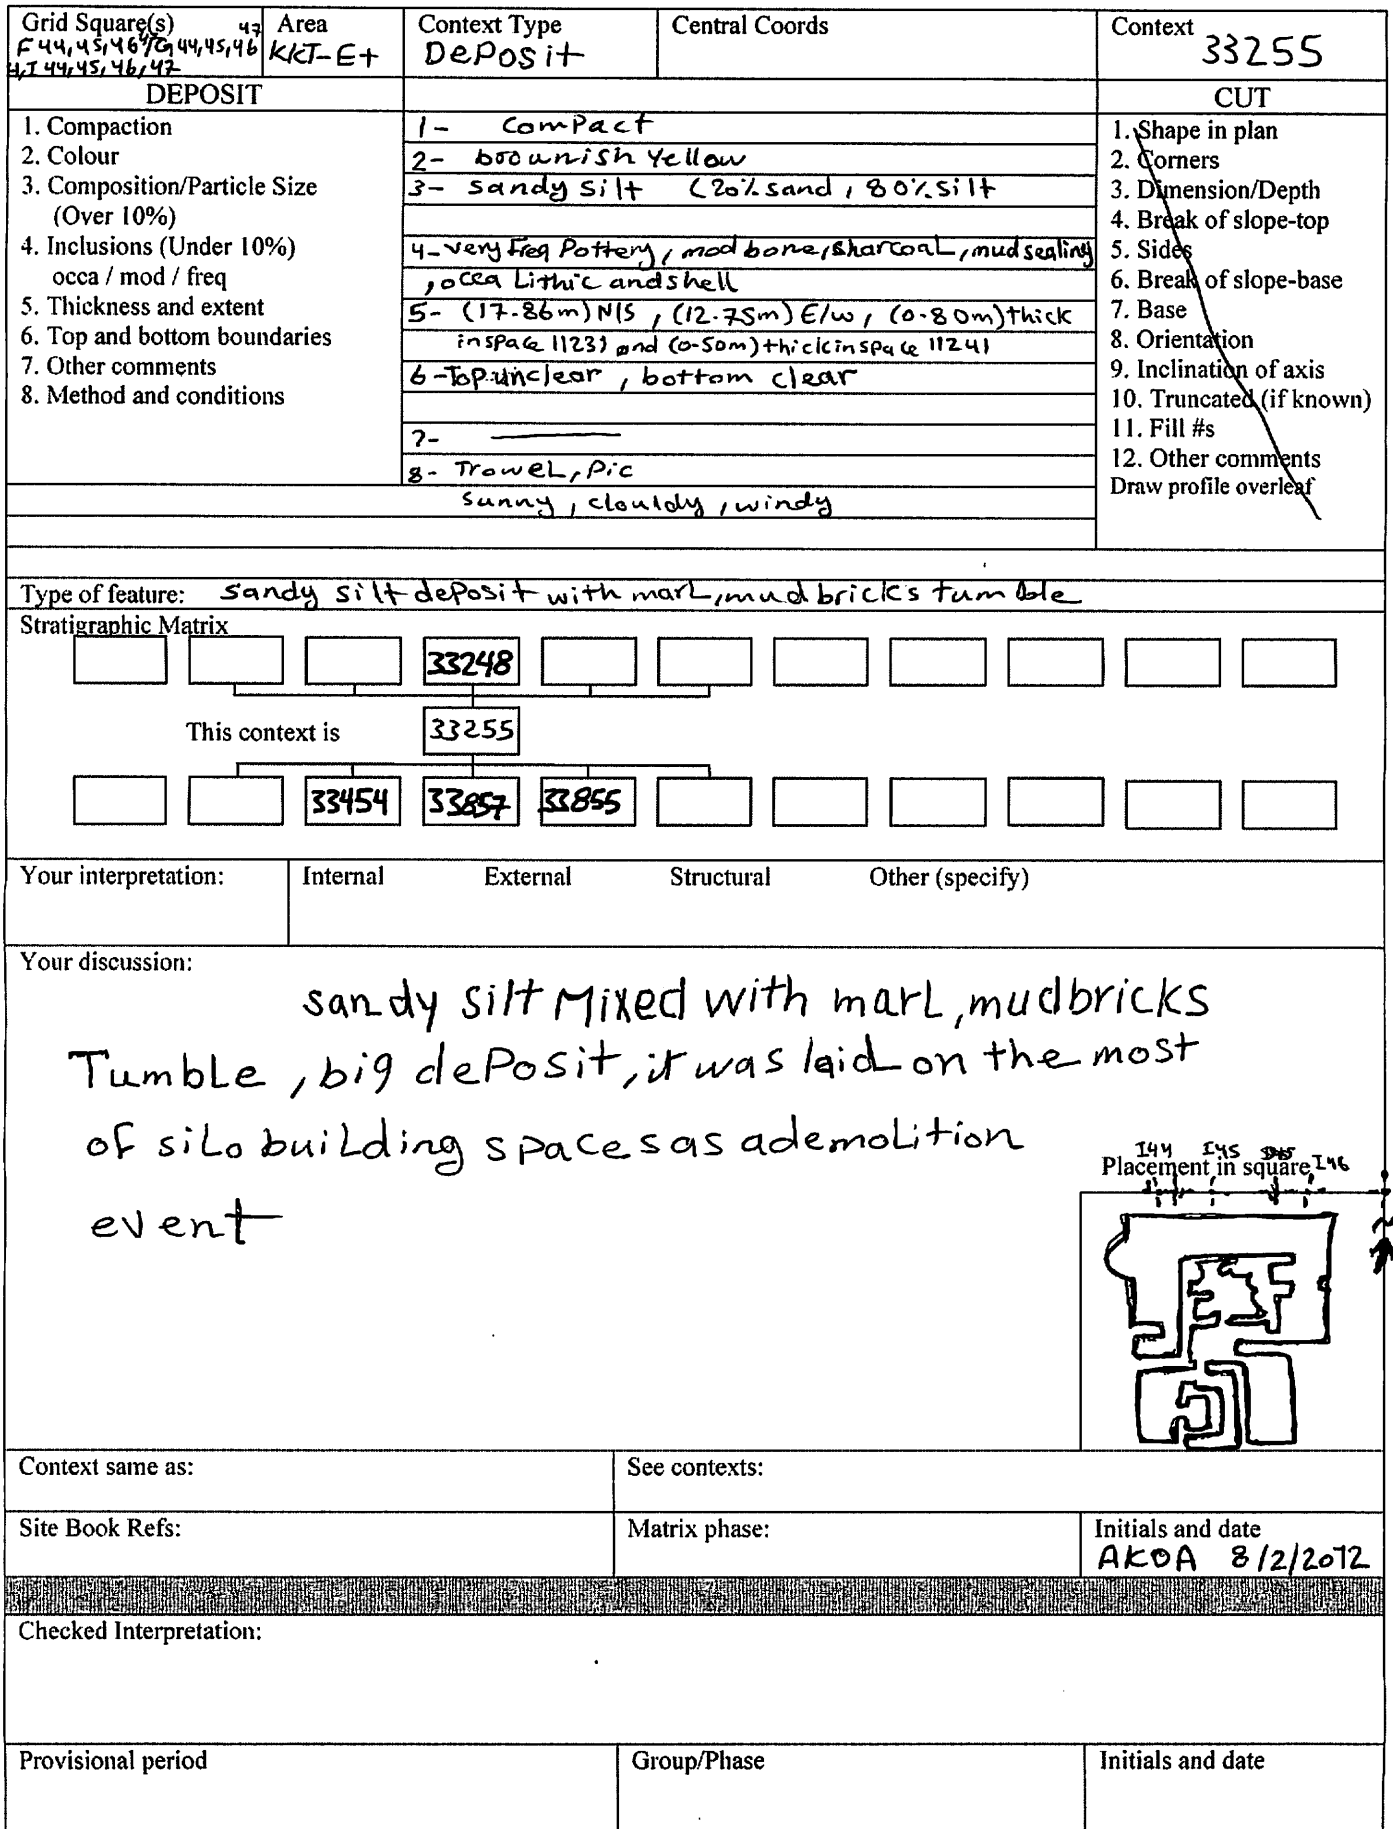 Grid Square(s) 47
F44,45,46,47/G44,45,46
H,I 44,45,46,47
Area
KKT-E+
Context Type
Deposit
Central Coords
Context
33255
DEPOSIT
CUT
1. Compaction
2. Colour
3. Composition/Particle Size
(Over 10%)
4. Inclusions (Under 10%)
occa / mod / freq
5. Thickness and extent
6. Top and bottom boundaries
7. Other comments
8. Method and conditions
1- Compact
2- broounish Yellow
3- sandy silt (20% sand, 80% silt
4- very freq Pottery, mod bone, sharcoaL, mud sealing
, occa Lithic and shell
5- (17.86m) N/S, (12.75m) E/w, (0.80m) thick
in space 11231 and (0.50m) thick in space 11241
6- Top unclear, bottom clear
7- ———
8- TroweL, Pic
sunny, clouldy, windy
1. Shape in plan
2. Corners
3. Dimension/Depth
4. Break of slope-top
5. Sides
6. Break of slope-base
7. Base
8. Orientation
9. Inclination of axis
10. Truncated (if known)
11. Fill #s
12. Other comments
Draw profile overleaf
Type of feature: sandy silt deposit with marL, mud bricks tumble
Stratigraphic Matrix
33248
This context is 33255
33454 33857 33855
Your interpretation: Internal External Structural Other (specify)
Your discussion:
sandy silt Mixed with marL, mudbricks
TumbLe, big dePosit, it was laid on the most
of siLo buiLding spaces as a demoLition
event
I44 I45 I46
Placement in square
Context same as:
See contexts:
Site Book Refs:
Matrix phase:
Initials and date
AKOA 8/2/2012
Checked Interpretation:
Provisional period
Group/Phase
Initials and date